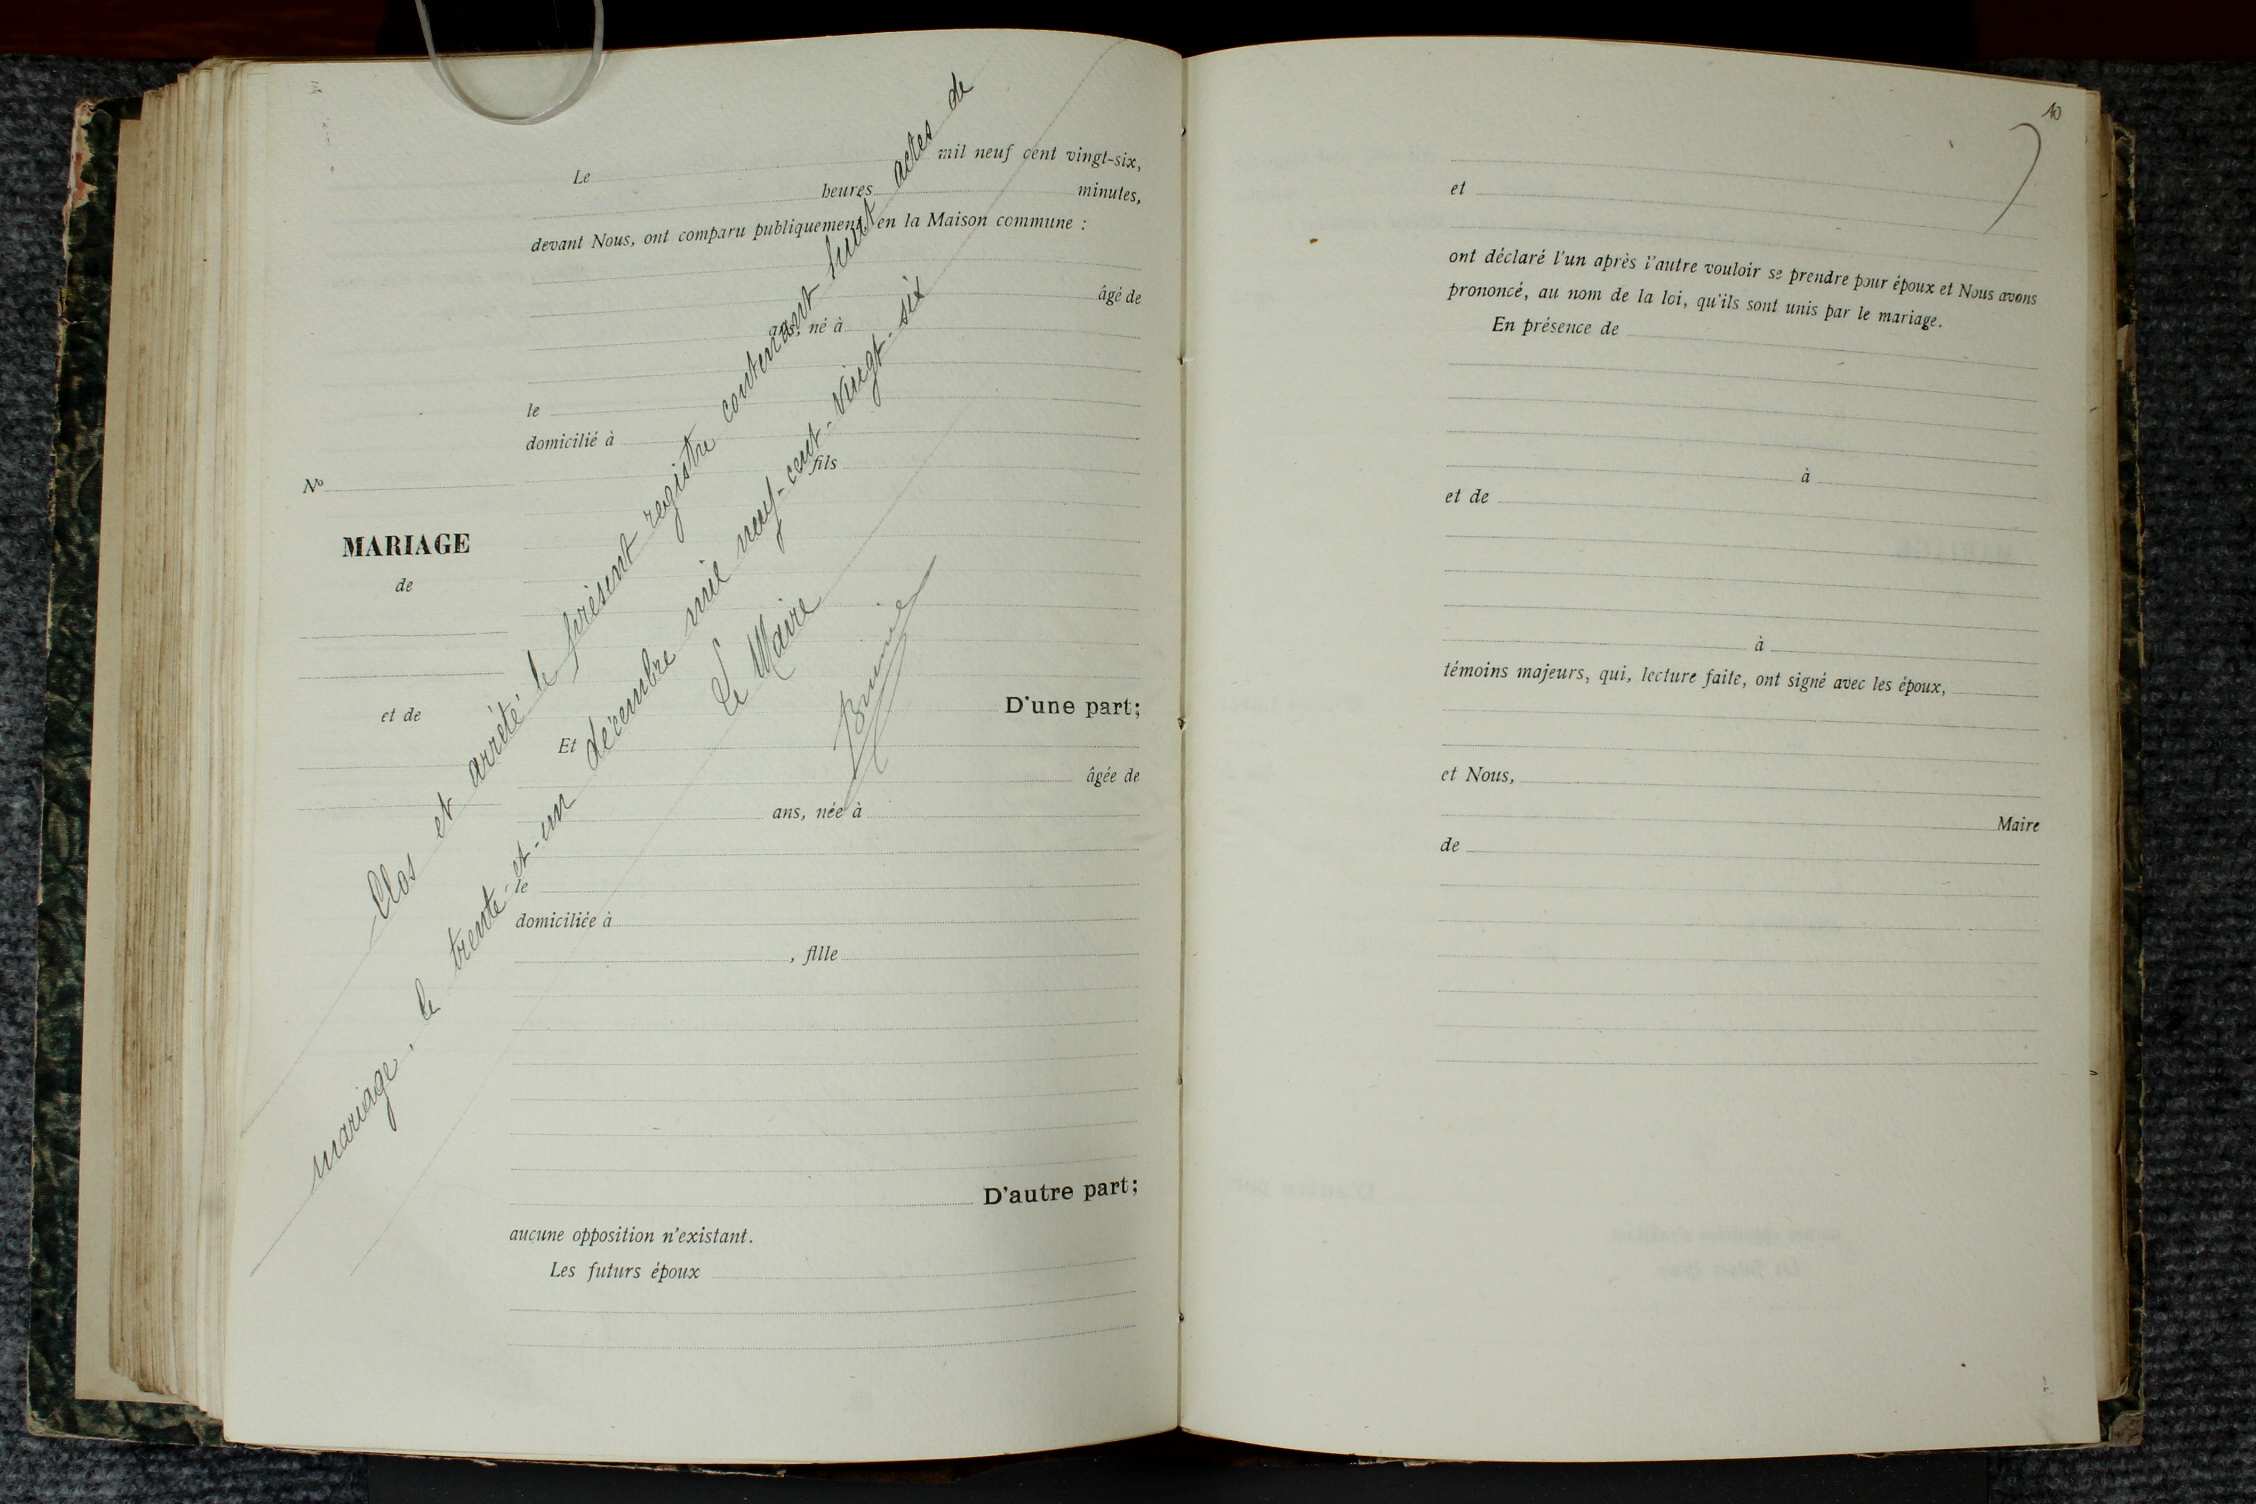 Le mil neuf cent vingt-six,
heures minutes,
devant Nous, ont comparu publiquement, en la Maison commune :
âgé de
ans, né à
le
domicilié à
fils
No
MARIAGE
de
et de
D'une part;
Et
âgée de
ans, née à
le
domiciliée à
, fille
D'autre part;
aucune opposition n'existant.
Les futurs époux
Clos et arrêté le présent registre contenant huit actes de
mariage, le trente-et-un décembre mil neuf-cent-vingt-six
Le Maire
10
et
ont déclaré l'un après l'autre vouloir se prendre pour époux et Nous avons
prononcé, au nom de la loi, qu'ils sont unis par le mariage.
En présence de
à
et de
à
témoins majeurs, qui, lecture faite, ont signé avec les époux,
et Nous,
Maire
de